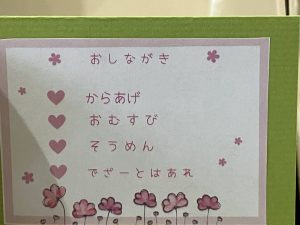 おしながき
からあげ
おむすび
そうめん
でざーとはあれ